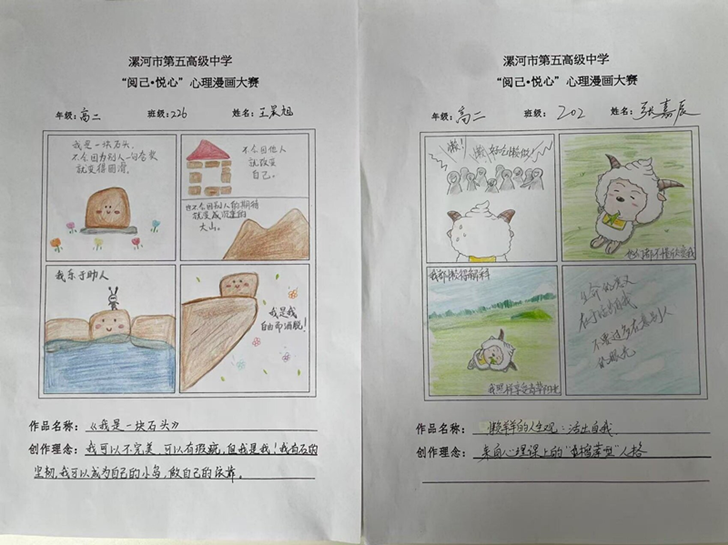 漯河市第五高级中学
“阅己•悦心”心理漫画大赛
年级：高二 班级：226 姓名：王昊旭
我是一块石头.
不会因为别人一句夸奖
就变得圆滑.
不会因他人
就改变
自己.
也不会因别人的期待
就变成沉重的
大山.
我乐于助人
我是我
自由而洒脱!
作品名称：《我是一块石头》
创作理念：我可以不完美,可以有瑕疵,但我是我!我有石的
坚韧,我可以成为自己的小岛,做自己的依靠.
漯河市第五高级中学
“阅己•悦心”心理漫画大赛
年级：高二 班级：202 姓名：张嘉辰
懒!
懒,好吃懒做!
他们都不懂欣赏我
我都懒得解释
我照样享受春节阳光
生命的意义
在于活出自我
不要过多在意别人
的眼光
作品名称：懒羊羊的人生观：活出自我
创作理念：来自心理课上的“ 型”人格